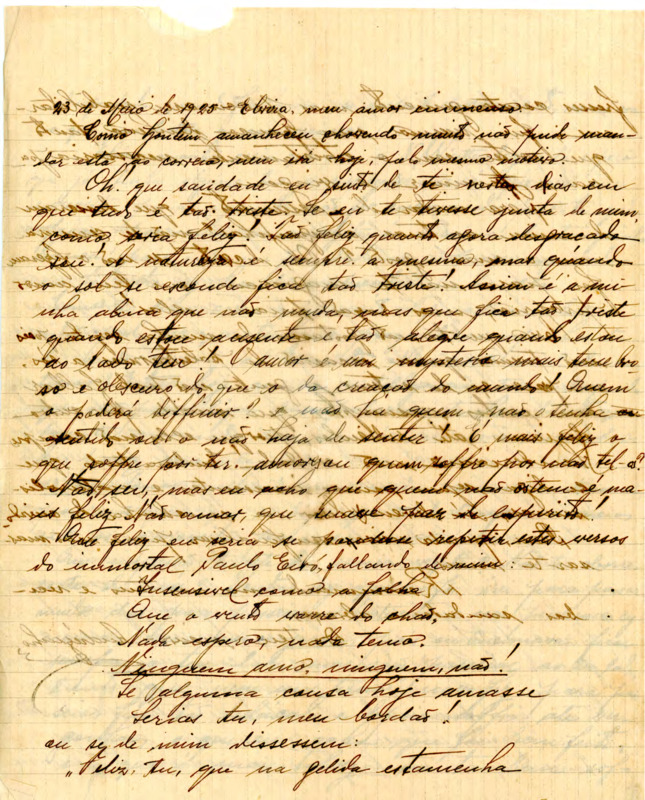 23 de Maio de 1925 Elvira, meu amor immenso.
Como hontem amanheceu chovendo muito não pude man-
dar esta ao correio, nem irá hoje, pelo mesmo motivo.
Oh. que saudade eu sinto de ti nestes dias em
que tudo é tão triste. Se eu te tivesse junta de mim,
como seria feliz! Tão feliz quanto agora desgraçado
sou! A natureza é sempre a mesma, mas quando
o sol se esconde fica tão triste! Assim é a mi-
nha alma que não muda, mas que fica tão triste
quando estou ausente e tão alegre quando estou
ao lado teu! O amor é um mysterio mais tenebro
so e obscuro do que o da creação do mundo! Quem
o poderá diffinir? e não ha quem não o tenha
sentido ou o não haja de sentir! É mais feliz o
que soffre por ter amores ou quem soffre por não tel-os?
Não sei, mas eu acho que quem não os tem é ma-
is feliz. Não amar, que maior paz de espirito!
Que feliz eu seria se podesse repetir estes versos
do immortal Paulo Eiró, fallando de mim:
Insensivel como a folha
Que o vento varre do chão,
Nada espero, nada temo.
Ninguem amo. ninguem, não!
Se alguma cousa hoje amasse
Serias tu, meu bordão!
ou se de mim dissessem:
"Feliz, tu, que na gelida estamenha